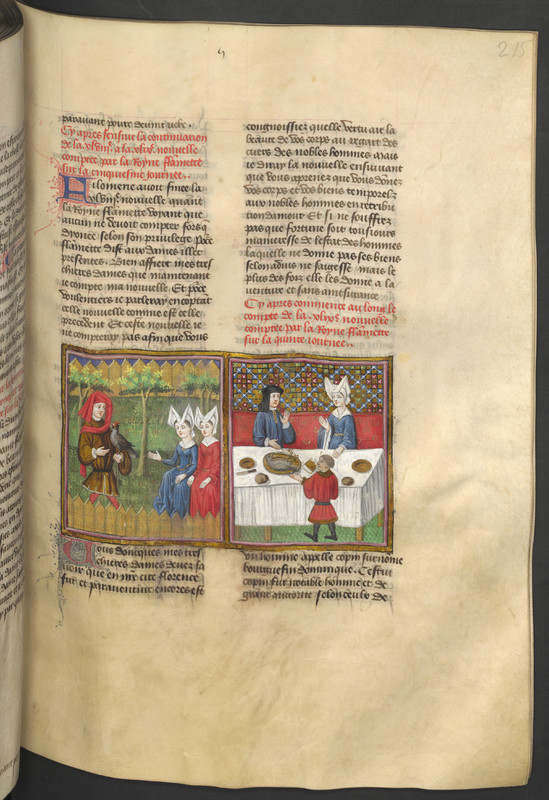 215
parauant pour deuint riche.
Cy apres sensuit la continuation
de la
nouvelle
comptee par la Royne flamette
sur la cinquiesme Journee.
Filomene auoit finee la
nouuelle quant
la Royne flamette voyant que
aucun ne deuoit compter fors q
dyonee selon son priuilege
flamette dist aux dames illec
presentes. Bien affiert mes tres
chieres dames que maintenant
ie compte ma nouuelle. Et
voulentiers ie parleray en comptant
celle nouuelle comme est celle
precedent Et ceste nouuelle ie
ne compteray pas afin que vous
congnoissiez quelle vertu ait la
beaute de vos corps au regart des
cuers des nobles hommes mais
ie diray la nouuelle ensuiuant
que vous apreniez que vous donez
vos corps et vos biens temporelz
aux nobles hommes en retribu
tion damour Et si ne souffrez
pas que fortune soit tousiours
maistresse de lestat des hommes
laquelle ne donne pas ses biens
selon aduis ne saigesse mais le
plus des fois elle les donne a la
uenture et sans
Cy apres commence au long le
compte de la
nouuelle
comptee par la Royne flamette
sur la quinte iournee.
Vous doncques mes tres
chieres dames deuez sa
uoir que en nre cite florence
fut et parauenture encores est
vn homme appelle copin surnome
bourguesin dominique. Cestui
copin fut notable homme et de
grant auctorite selon ceulx de